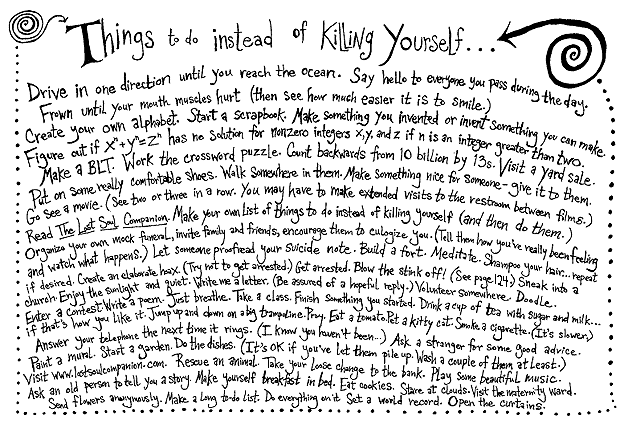 Things to do instead of Killing Yourself...
Drive in one direction until you reach the ocean. Say hello to everyone you pass during the day.
Frown until your mouth muscles hurt (then see how much easier it is to smile.)
Create your own alphabet. Start a scrapbook. Make something you invented or invent something you can make.
Figure out if Xⁿ+Yⁿ=Zⁿ has no solution for nonzero integers x, y, and z if n is an integer greater than two.
Make a BLT. Work the crossword puzzle. Count backwards from 10 billion by 13s. Visit a yard sale.
Put on some really comfortable shoes. Walk somewhere in them. Make something nice for someone - give it to them.
Go see a movie. (See two or three in a row. You may have to make extended visits to the restroom between films.)
Read The Lost Soul Companion. Make your own list of things to do instead of killing yourself (and then do them.)
Organize your own mock funeral, invite family and friends, encourage them to eulogize you. (Tell them how you've really been feeling
and watch what happens.) Let someone proofread your suicide note. Build a fort. Meditate. Shampoo your hair... repeat
if desired. Create an elaborate hoax. (Try not to get arrested.) Get arrested. Blow the stink off! (See page 124) Sneak into a
church. Enjoy the sunlight and quiet. Write me a letter. (Be assured of a hopeful reply.) Volunteer somewhere. Doodle.
Enter a contest. Write a poem. Just breathe. Take a class. Finish something you started. Drink a cup of tea with sugar and milk...
if that's how you like it. Jump up and down on a big trampoline. Pray. Eat a tomato. Pet a kitty cat. Smoke a cigarette. (It's slower.)
Answer your telephone the next time it rings. (I know you haven't been...) Ask a stranger for some good advice.
Paint a mural. Start a garden. Do the dishes. (It's OK if you've let them pile up. Wash a couple of them at least.)
Visit www.lostsoulcompanion.com. Rescue an animal. Take your loose change to the bank. Play some beautiful music.
Ask an old person to tell you a story. Make yourself breakfast in bed. Eat cookies. Stare at clouds. Visit the maternity ward.
Send flowers anonymously. Make a long to-do list. Do everything on it. Set a world record. Open the curtains.